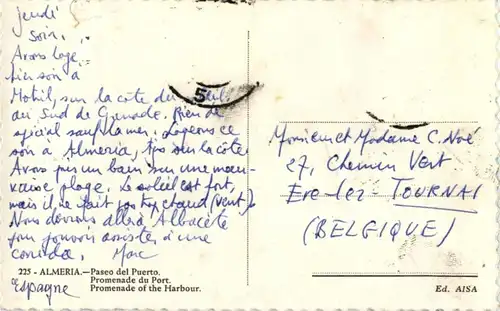 Jeudi
Soir.
Avons logé
hier soir à
Motril, sur la côte du
au Sud de Grenade. Rien de
spécial sauf la mer. Logeons ce
soir à Almeria, tjs sur la côte
Avons pris un bain sur une mau-
vaise plage. Le soleil est fort,
mais il ne fait pas chaud (vent)
Nous devrons aller à Albacete
pour pouvoir assister à une
corrida. Marc
225 - ALMERIA.—Paseo del Puerto.
Promenade du Port.
Promenade of the Harbour.
Espagne
5
Monsieur et Madame C. Noé
27, Chemin Vert
Ere-lez-TOURNAI
(BELGIQUE)
Ed. AISA